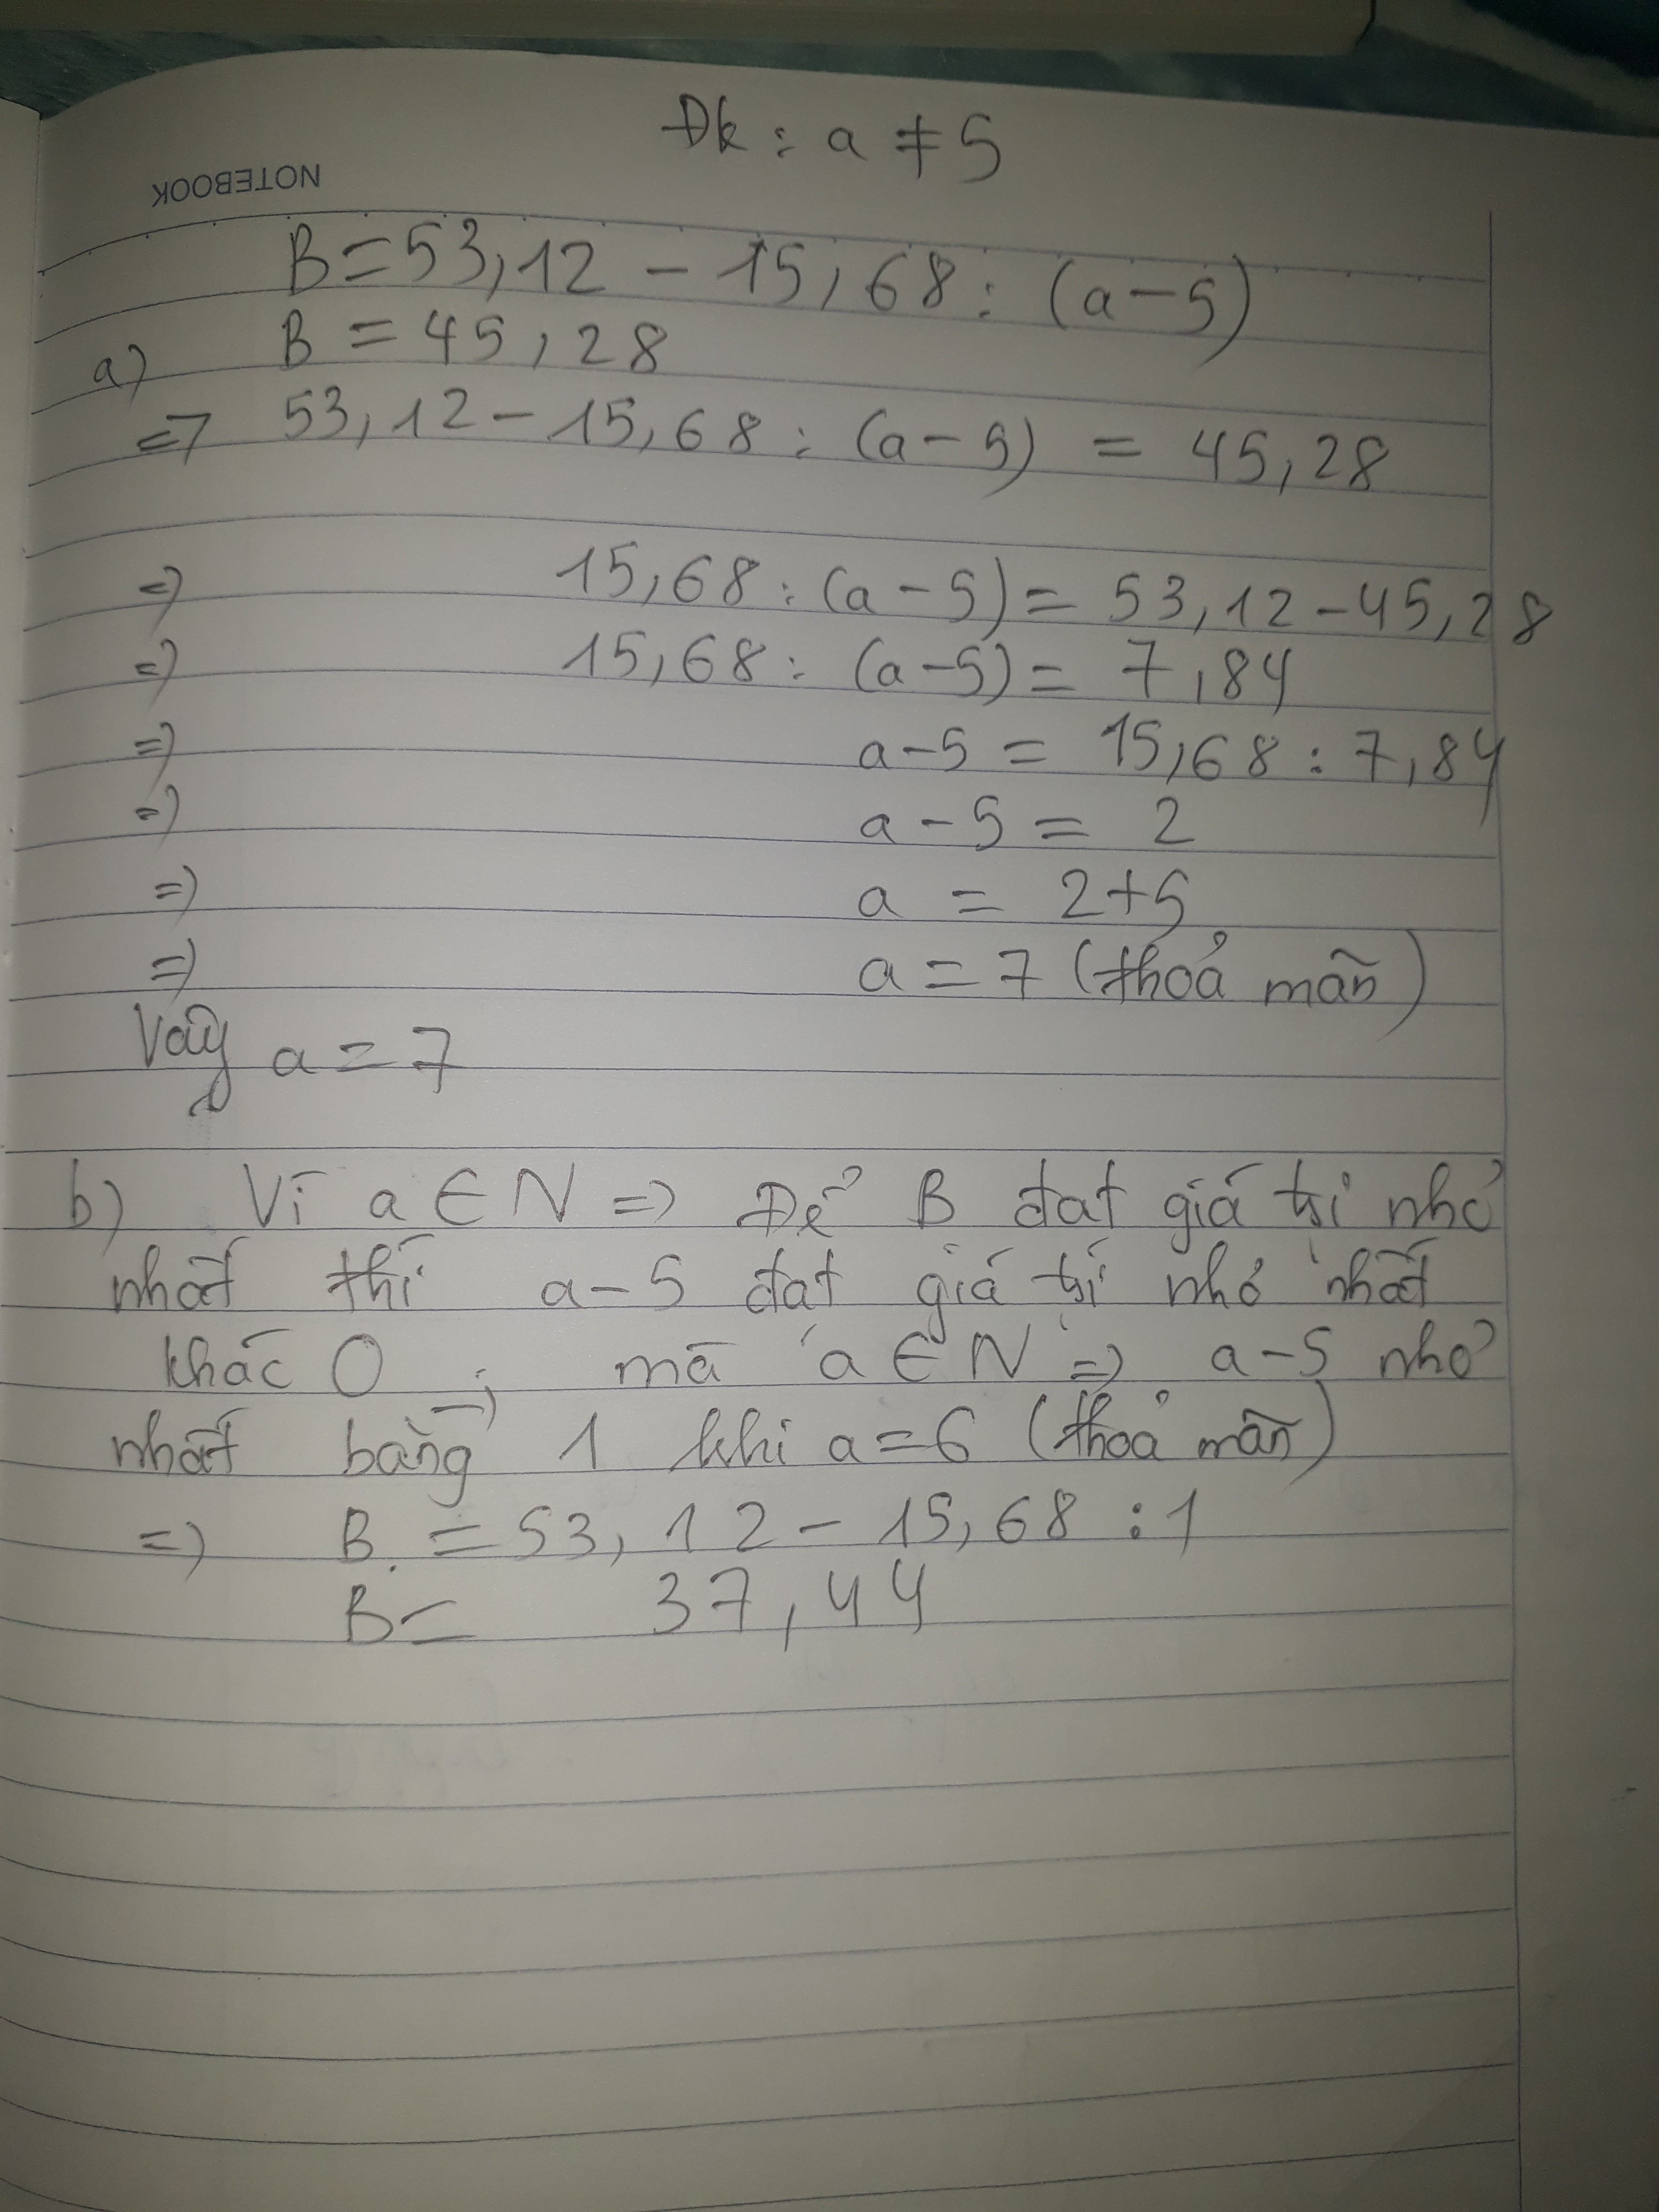 Đk : a ≠ 5
NOTEBOOK
B = 53,12 - 15,68 : (a - 5)
a) B = 45,28
=> 53,12 - 15,68 : (a - 5) = 45,28
=> 15,68 : (a - 5) = 53,12 - 45,28
=> 15,68 : (a - 5) = 7,84
=> a - 5 = 15,68 : 7,84
=> a - 5 = 2
=> a = 2 + 5
=> a = 7 (thoả mãn)
Vậy a = 7
b) Vì a ∈ N => Để B đạt giá trị nhỏ
nhất thì a - 5 đạt giá trị nhỏ nhất
khác 0 ; mà a ∈ N => a - 5 nhỏ
nhất bằng 1 khi a = 6 (thoả mãn)
=> B = 53,12 - 15,68 : 1
B = 37,44